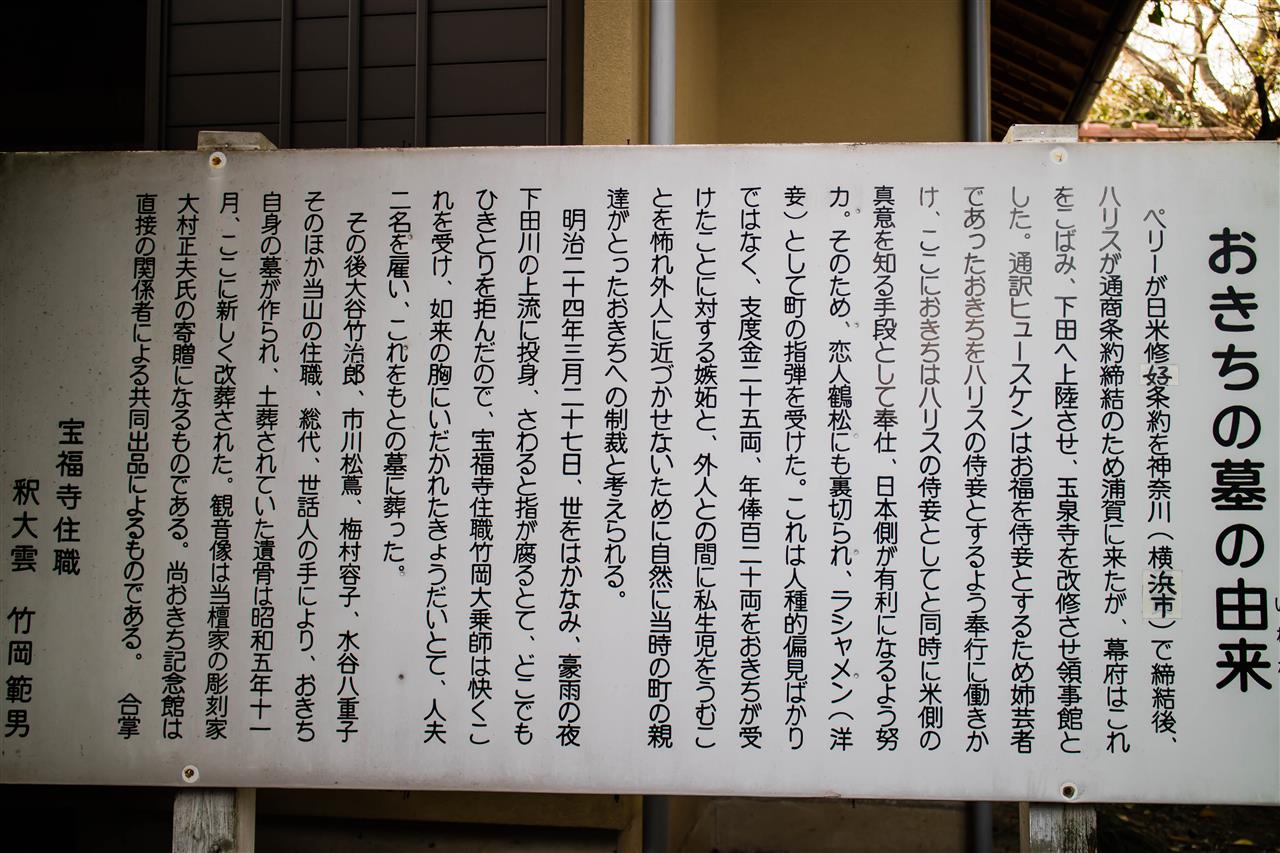 おきちの墓の由来
ペリーが日米修好条約を神奈川（横浜市）で締結後、
ハリスが通商条約締結のため浦賀に来たが、幕府はこれ
をこばみ、下田へ上陸させ、玉泉寺を改修させ領事館と
した。通訳ヒュースケンはお福を侍妾とするため姉芸者
であったおきちをハリスの侍妾とするよう奉行に働きか
け、ここにおきちはハリスの侍妾としてと同時に米側の
真意を知る手段として奉仕、日本側が有利になるよう努
力。そのため、恋人鶴松にも裏切られ、ラシャメン（洋
妾）として町の指弾を受けた。これは人種的偏見ばかり
ではなく、支度金二十五両、年俸百二十両をおきちが受
けたことに対する嫉妬と、外人との間に私生児をうむこ
とを怖れ外人に近づかせないために自然に当時の町の親
達がとったおきちへの制裁と考えられる。
明治二十四年三月二十七日、世をはかなみ、豪雨の夜
下田川の上流に投身、さわると指が腐るとて、どこでも
ひきとりを拒んだので、宝福寺住職竹岡大乗師は快くこ
れを受け、如来の胸にいだかれたきょうだいとて、人夫
二名を雇い、これをもとの墓に葬った。
その後大谷竹治郎、市川松蔦、梅村容子、水谷八重子
そのほか当山の住職、総代、世話人の手により、おきち
自身の墓が作られ、土葬されていた遺骨は昭和五年十一
月、ここに新しく改葬された。観音像は当檀家の彫刻家
大村正夫氏の寄贈になるものである。尚おきち記念館は
直接の関係者による共同出品によるものである。　合掌
宝福寺住職
釈大雲　竹岡範男